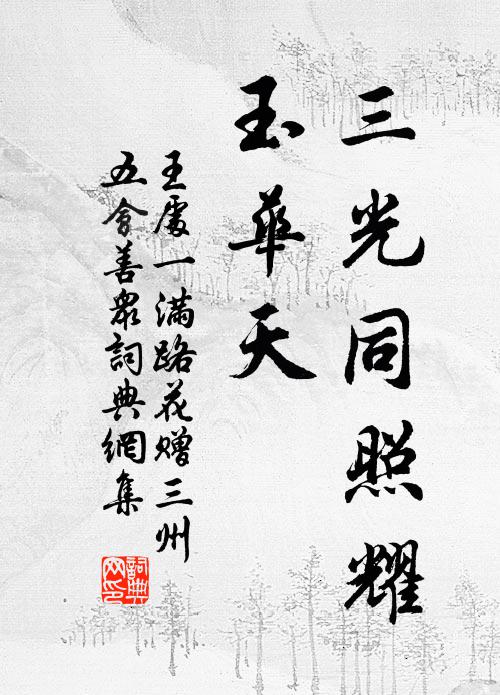 三光同照耀
玉華天
王處一滿路花贈三州
五會善眾詞典網集
詞典
网印